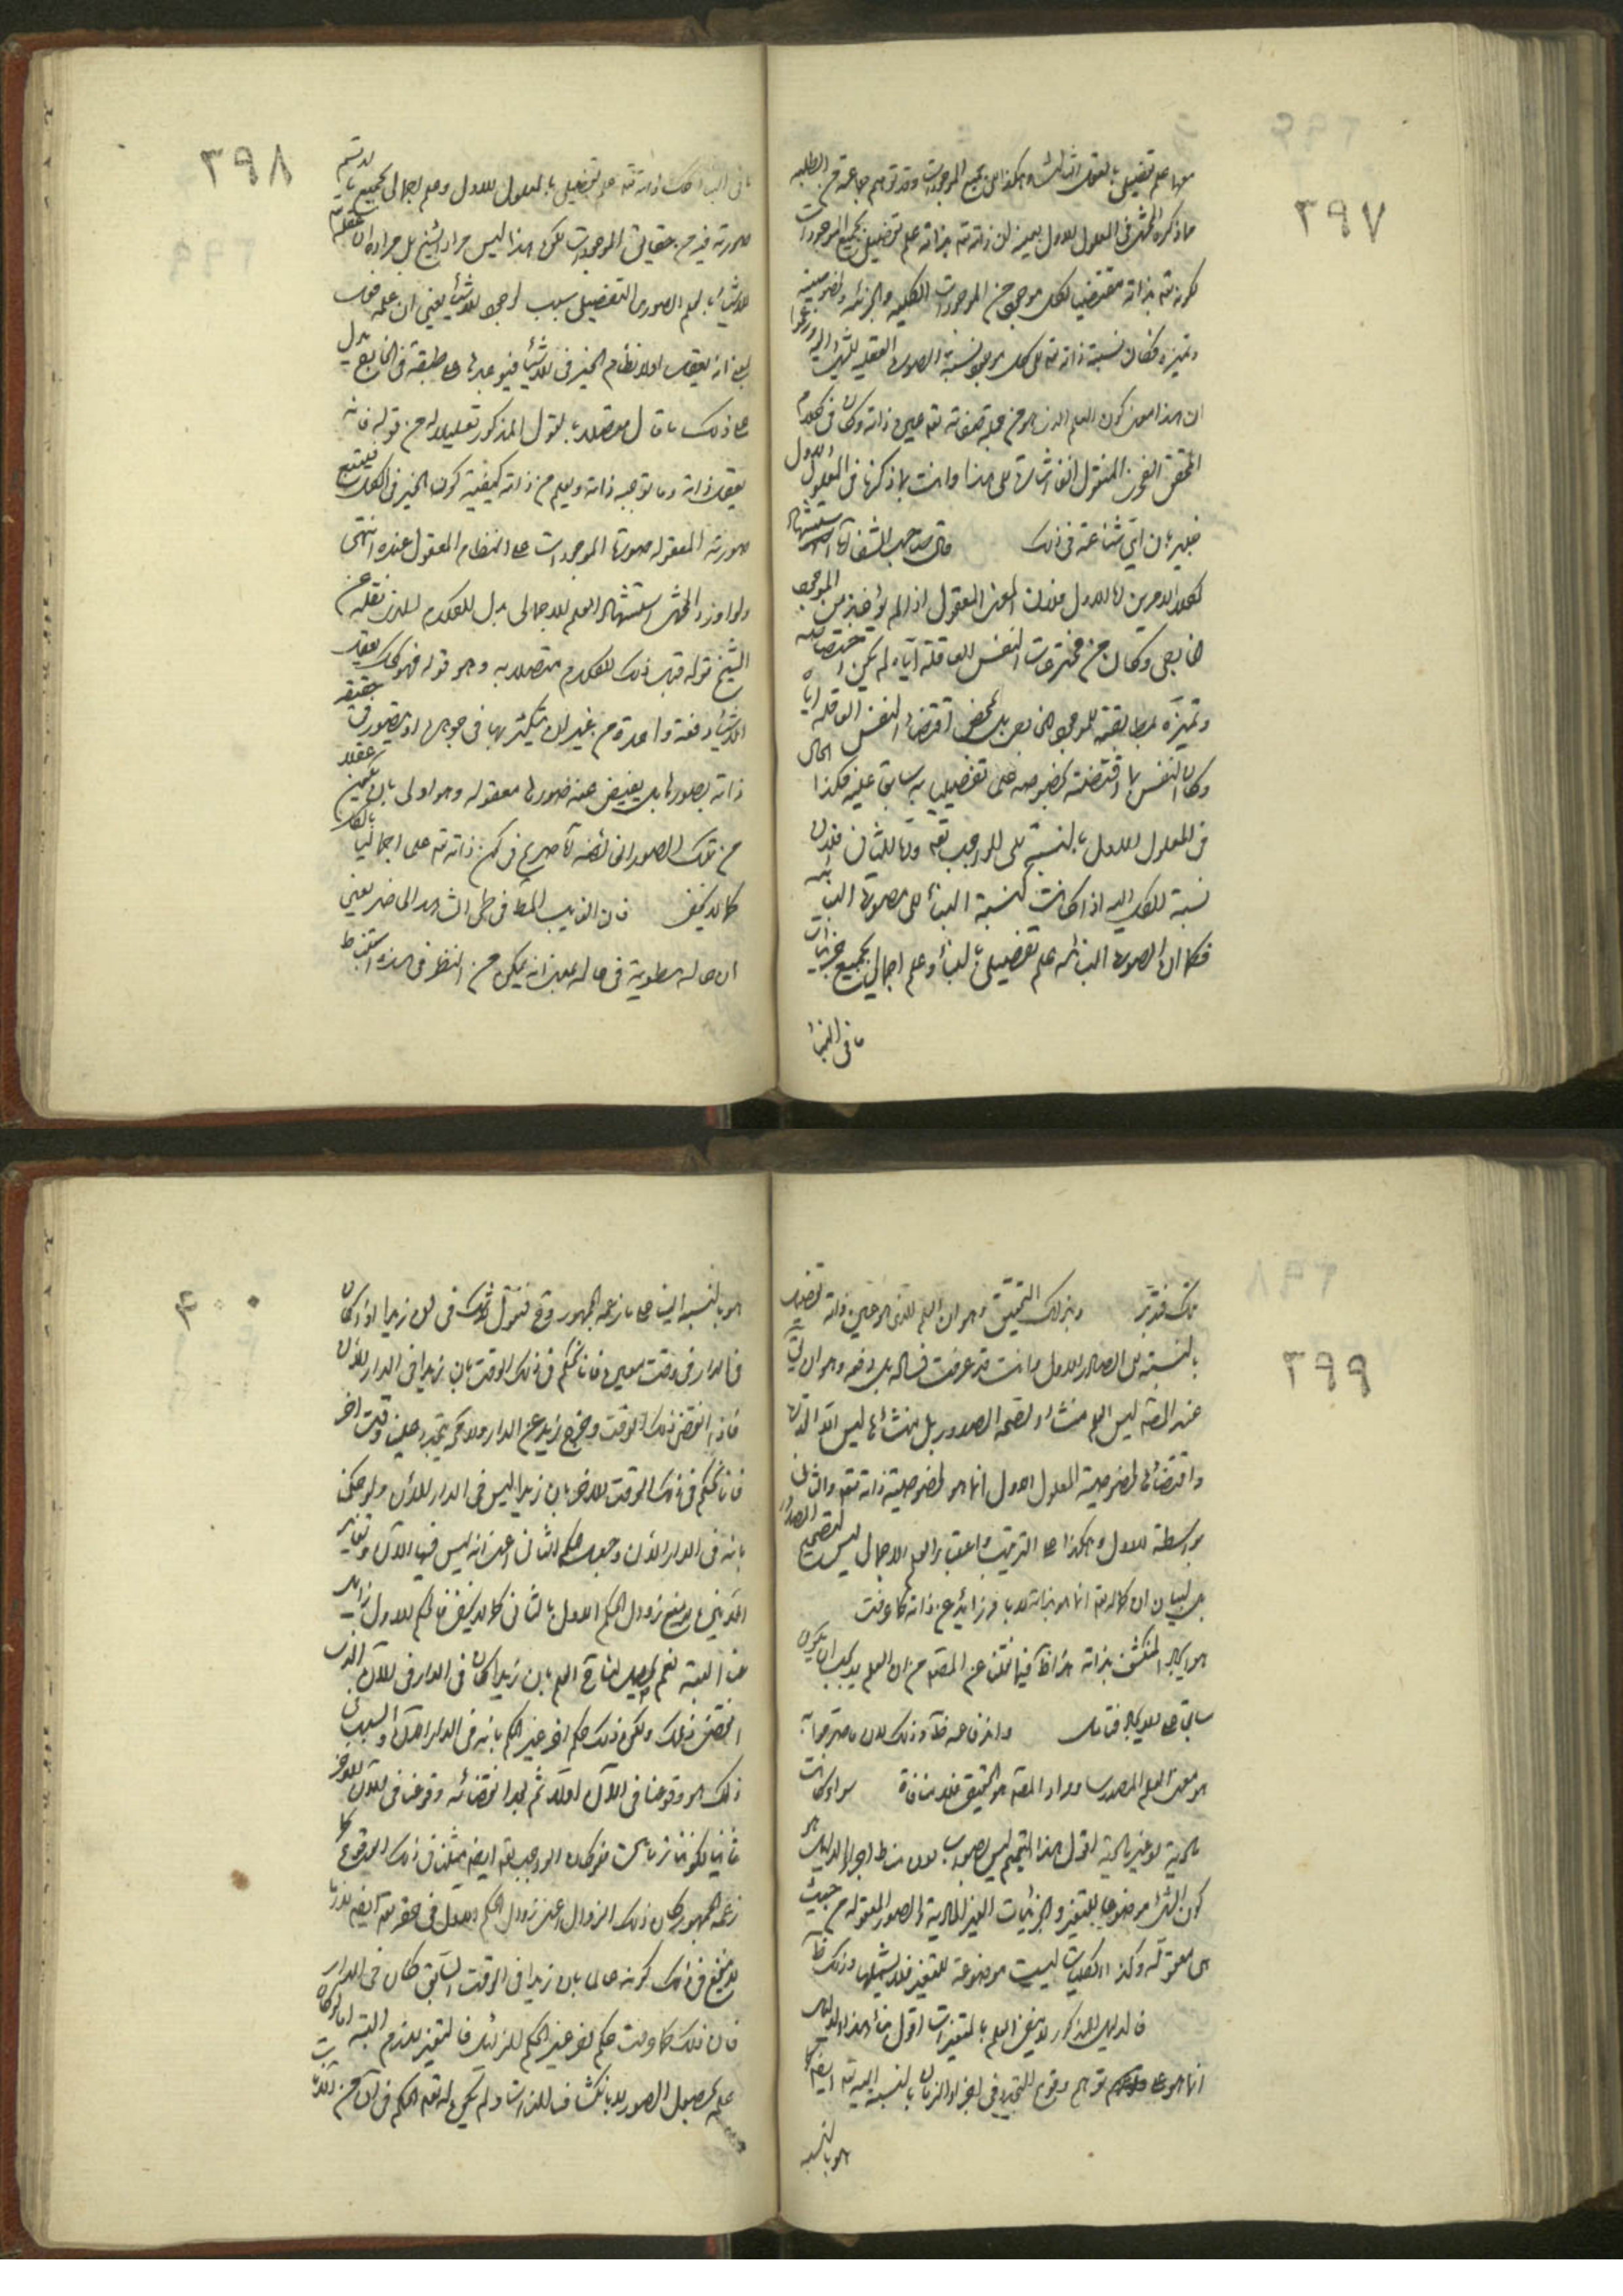 ٣٩٧
منها علم تفصيلي بالعقل الثالث وهكذا الى جميع الموجودات وقد توهم جماعة من الطلبة
ما ذكره المحشي في المعلول الاول بعينه لان ذاته تعه بذاته علم تفصيلي بجميع الموجودات
كونه تعه بذاته مقتضيا لكل موجود من الموجودات الكلية والجزئية ولخصوصيته
وتميزه فكان نسبة ذاته تعه الى كل موجود نسبة الصورة العقلية
ان هذا معنى كون العلم الذي هو من جملة صفاته تعه عين ذاته وكان في كلام
المحقق الفخري المنقول انفا اشارة الى هذا وانت بما ذكرنا في المعلول الاول
خبير بان اي شناعة في ذلك قال صاحب الشفا استشهاد
كلا الامرين اما الاول فلان المعنى المعقول اذا لم يؤخذ من الموجود
الخارجي وكان من مخترعات النفس العاقلة اياه لم يكن اختصاصه
وتميزه لمطابقته للموجود الخارجي بل بمحض اقتضاء النفس العاقلة اياه
وكان النفس بما اقتضته بخصوصه على تفصيلي به سابق عليه فكذا الحال
في المعلول الاول بالنسبة الى الواجب تعه واما الثاني فلان
نسبة الكل اليه اذا كانت كنسبة البناء الى صورة البنائية
فكما ان الصورة البنائية علم تفصيلي بالبناء وعلم اجمالي بجميع جزئيات
ما في البناء
٣٩٨
ما في البناء كذلك ذاته تعه علم تفصيلي بالمعلول الاول وعلم اجمالي بجميع ما يرتسم
صورته فيه من حقايق الموجودات لكن هذا ليس مراد الشيخ بل مراده ان عقله تعه
للاشياء بالعلم الصوري التفصيلي سبب لوجود الاشياء يعني ان علمه فعلي
لمعنى انه يعقل اولا نظام الخير في الاشياء فيوجدها على طبقه في الخارج يدل
على ذلك ما قال متصلا بالقول المذكور تعليلا له من قوله فانه
يعقل ذاته وما توجبه ذاته ويعلم من ذاته كيفية كون الخير في الكل فيتبع
صورته المعقولة صورة الموجودات على النظام المعقول عنده انتهى
ولو اورد المحشي استشهاد العلم الاجمالي بدل الكلام الذي نقله من
الشيخ قوله قبل ذلك الكلام متصلا به وهو قوله فهو لذلك يعقل
الاشياء دفعة واحدة من غير ان يتكثر بها في جوهره او يتصور في حقيقة
ذاته بصورها بل يفيض عنه صورها معقولة وهو اولى بان يكون عقلا
من تلك الصور الفائضة لكان صريح في كون ذاته تعه علما اجماليا بالكل
كما لا يخفى فان الغايب المطوي في طي الشاهد الحاضر يعني
ان حاله مطوية في حاله بمعنى انه يمكن من النظر في هذه استنباط
٣٩٩
تلك فتدبر وبذلك التحقيق وهو ان العلم الذي هو عين ذاته تفصيلي
بالنسبة الى الصادر الاول وانت قد عرفت فساده بل دفعه وهو ان يق
عند المصنف ليس العلم منشاء لصحة الصدور بل منشائها ليس الا الذات
واقتضائها لخصوصية المعلول الاول انما هو لخصوصية ذاته تعه والثاني
بواسطة الاول وهكذا على الترتيب واعتبر العلم الاجمالي ليس لتصحيح الصدور
بل لبيان ان كماله تعه انما هو بذاته لا بامر زايد عن ذاته كما عرفت
هو ايجاد المنكشف بذاته هذا كما نقلنا عن المصنف من ان العلم لا يجب ان يكون
سابق على الايجاد فتامل واندفاعه ظه وذلك لان ما صرحوا به
هو معنى العلم المصدري ومراد المصنف هو الحقيقي فلا منافاة سواء كانت
مادية او غير مادية اقول هذا التعميم ليس بصواب لان مناط اجراء الدليل هو
كون الشئ موضوعا للتغير والجزئيات الغير المادية والصور المعقولة من حيث
هي معقولة وكذا الكليات ليست موضوعة للتغير فلا يشملها وذلك ظه
فالدليل المذكور لا ينفي العلم بالمتغيرات اقول بناء هذا الدليل
انما هو على توهم وقوع التجدد في اجزاء الزمان بالنسبة اليه تعه ايضا كما
هو بالنسبة
٤٠٠
هو بالنسبة الينا على ما زعمه الجمهور وح نقول لا شك في ان زيدا لو كان
في الدار في وقت معين فانا نحكم في ذلك الوقت بان زيدا في الدار الآن
فاذا انقضى ذلك الوقت وخرج زيد عن الدار ولا محة يتجدد حينئذ وقت اخر
فانا نحكم في ذلك الوقت الاخر بان زيدا ليس في الدار الآن ولو حكمنا
بانه في الدار الآن وجب حكم الثاني اعني انه ليس فيها الآن وتغاير
الآنين لا يمنع زوال الحكم الاول بالثاني كما لا يخفى فالحكم الاول زايل
عنا البتة نعم يحصل لنا ح العلم بان زيدا كان في الدار في الآن الذي
انقضى ذلك ولكن ذلك حكم اخر غير الحكم بانه في الدار الآن والسبب في
ذلك هو وقوعنا في الآن اولا ثم بعد انقضائه وقوعنا في الآن الاخر
ثانيا لكوننا زمانيات فلو كان الواجب تعه ايضا مثلنا في ذلك الوقوع كما
زعمه الجمهور كان ذلك الزوال اعني زوال الحكم الاول في حقه تعه ايضا لازما
لا ينفع في ذلك كونه عالما بان زيدا في الوقت السابق كان في الدار
فان ذلك كما عرفت حكم اخر غير الحكم الزايل فالتغير لازم البتة اما لو كان
علمه بحصول الصور لا بانكشاف الذات ولم يكن له تعه الحكم في آن من